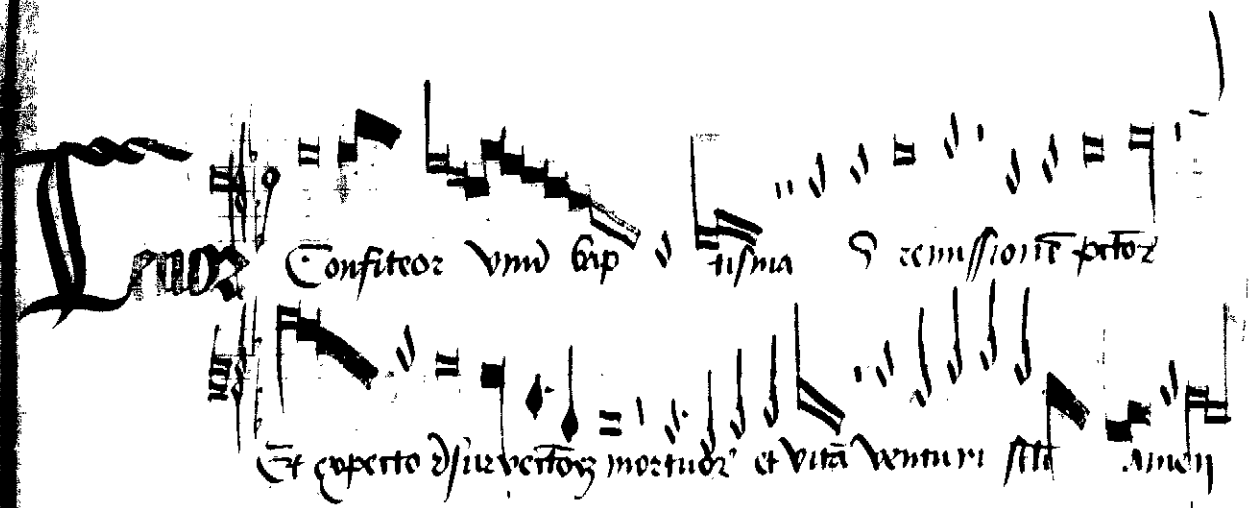 Tenor Confiteor vnū bap tisma Ī remissionē pctor
Et expecto resurrectōꝫ mortuor et vitā venturi scli amen